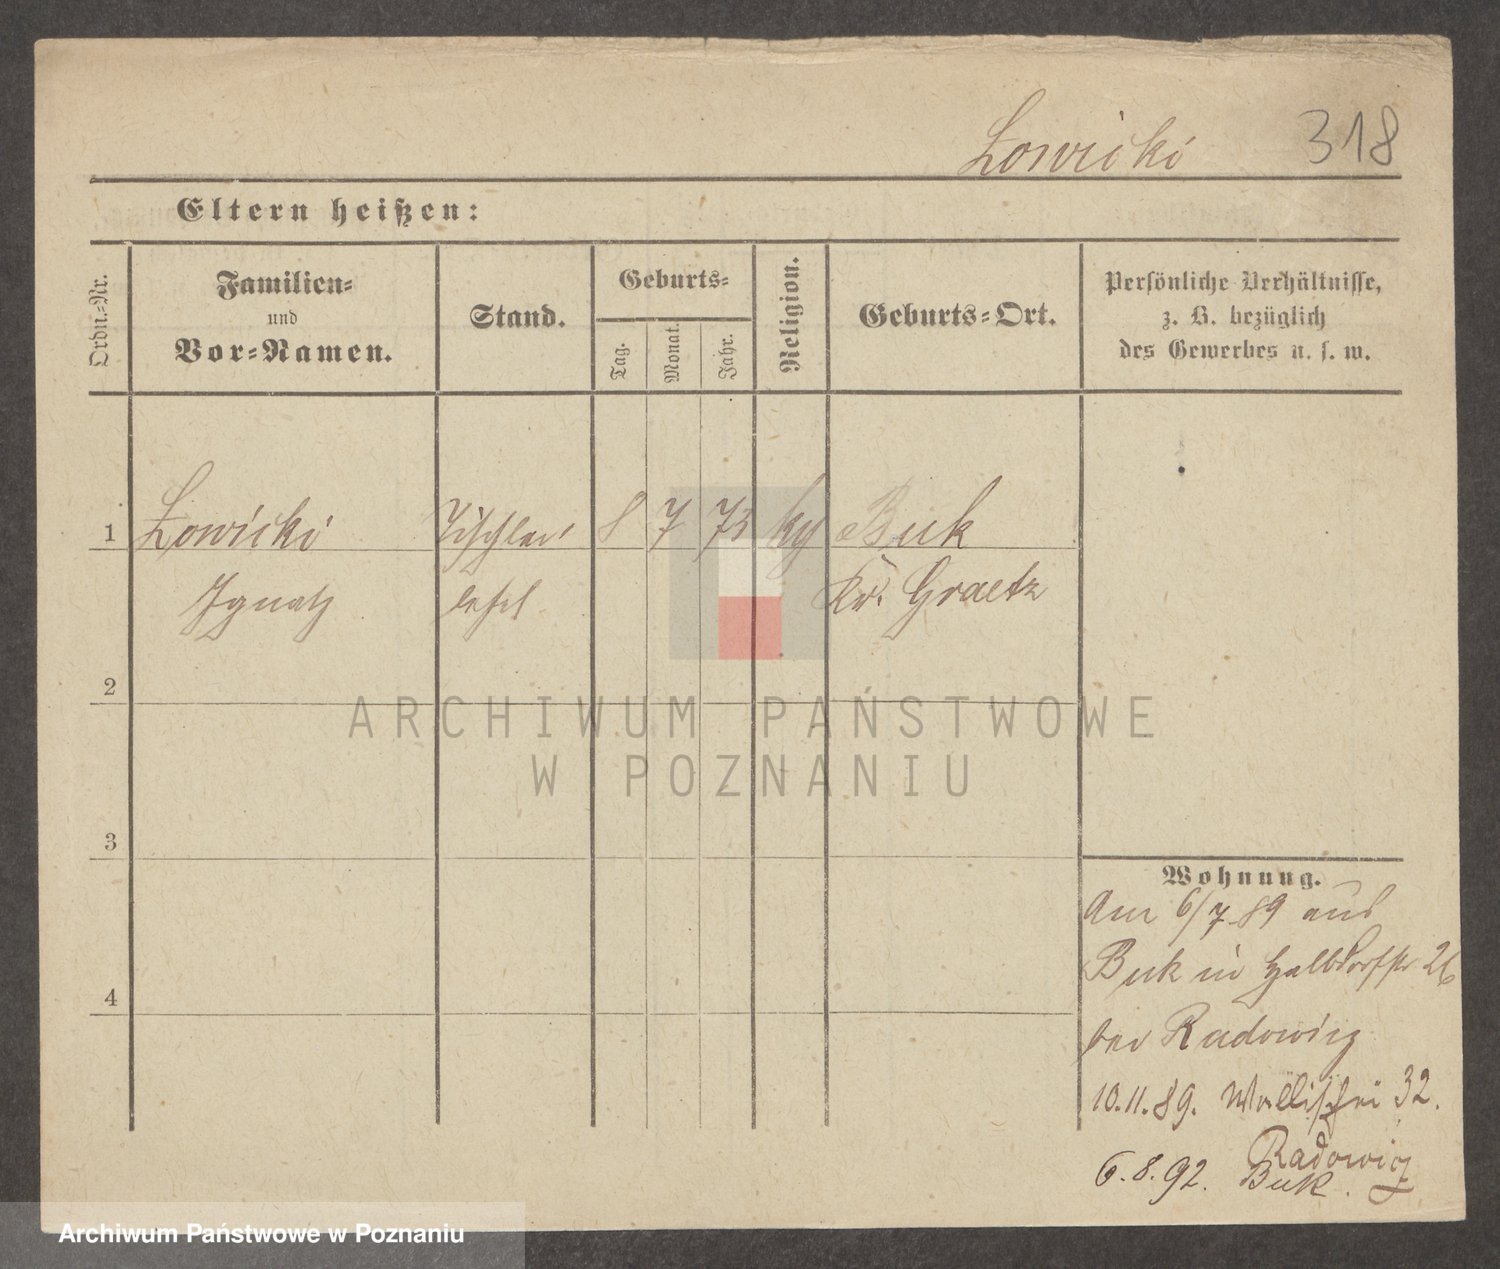 Łowicki 318
Eltern heißen:
Ordn.-Nr.
Familien-
und
Vor-Namen.
Stand.
Geburts-
Tag.
Monat.
Jahr.
Religion.
Geburts-Ort.
Persönliche Verhältnisse,
z. B. bezüglich
des Gewerbes u. s. w.
1 Łowicki Tischler 8 7 73 Buk
Ignatz Kr. Graetz
2
3
4
Wohnung.
Am 6/7 89 aus
Buk in Halbdorfstr 26
bei Radowicz
10.11.89. Wallischei 32.
Radowicz
6.8.92. Buk.
ARCHIWUM PAŃSTWOWE
W POZNANIU
Archiwum Państwowe w Poznaniu